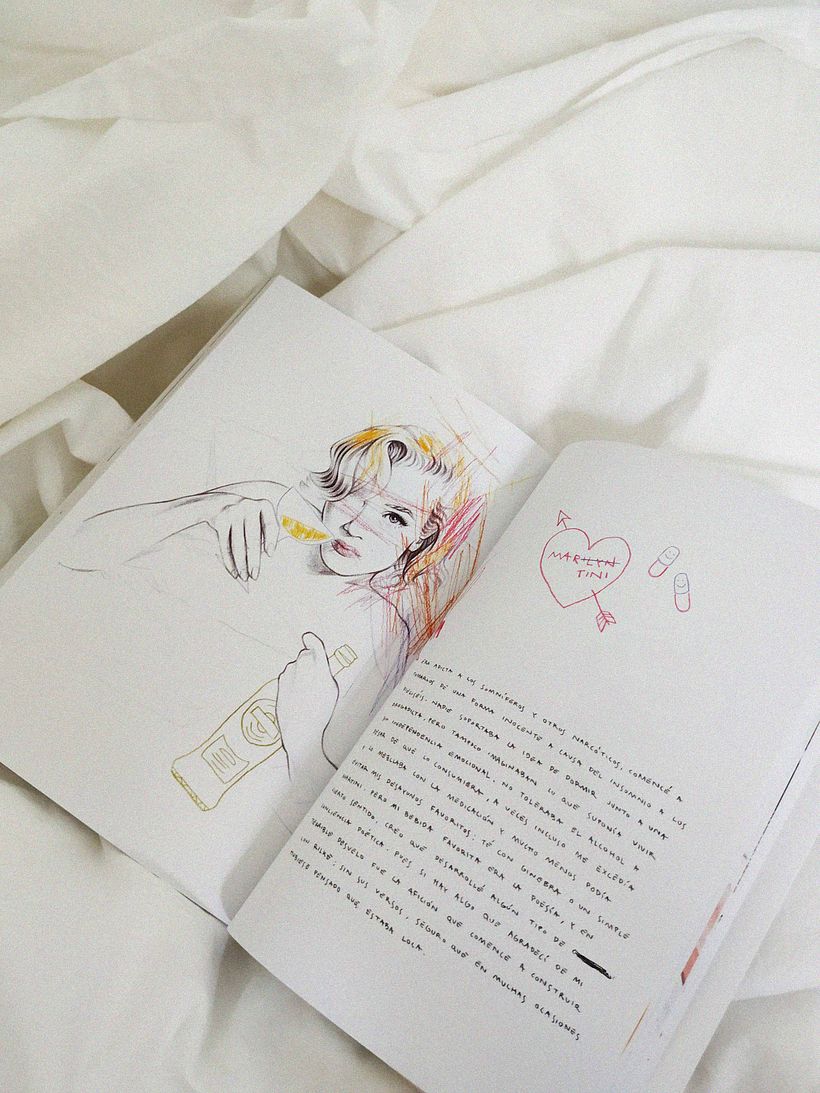 MARILYN
TINI
A LOS SOMNÍFEROS Y OTROS NARCÓTICOS, COMENCÉ A
DE UNA FORMA INOCENTE A CAUSA DEL INSOMNIO A LOS
NADIE SOPORTABA LA IDEA DE DORMIR JUNTO A UNA
PERO TAMPOCO IMAGINABAN LO QUE SUPONÍA VIVIR
INDEPENDENCIA EMOCIONAL. NO TOLERABA EL ALCOHOL A
PESAR DE QUE LO CONSUMIERA, A VECES INCLUSO ME EXCEDÍA
Y LO MEZCLABA CON LA MEDICACIÓN Y MUCHO MENOS PODÍA
EVITAR MIS DESAYUNOS FAVORITOS: TÉ CON GINEBRA O UN SIMPLE
MARTINI; PERO MI BEBIDA FAVORITA ERA LA POESÍA, Y EN
CIERTO SENTIDO, CREO QUE DESARROLLÉ ALGÚN TIPO DE
POÉTICA, PUES SI HAY ALGO QUE AGRADECÍ DE MI
TERRIBLE DESVELO FUE LA AFICIÓN QUE COMENCÉ A CONSTRUIR
CON RILKE; SIN SUS VERSOS, SEGURO QUE EN MUCHAS OCASIONES
HUBIESE PENSADO QUE ESTABA LOCA.